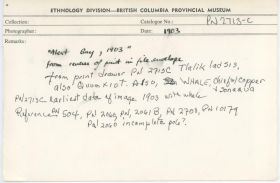 ETHNOLOGY DIVISION—BRITISH COLUMBIA PROVINCIAL MUSEUM
Collection: Catalogue No.: PN 2713-C
Photographer: Date: 1903
Remarks:
"Alert Bay, 1903"
from reverse of print in file envelope
from print drawer PN 2713C Tlalik
also ALSO, WHALE, chief of copper
PN2713C earliest date of image 1903 with whale
Reference PN 504, PN 2060, PN 2061B, PN 2708, PN 10179
PN 2050 incomplete pole?